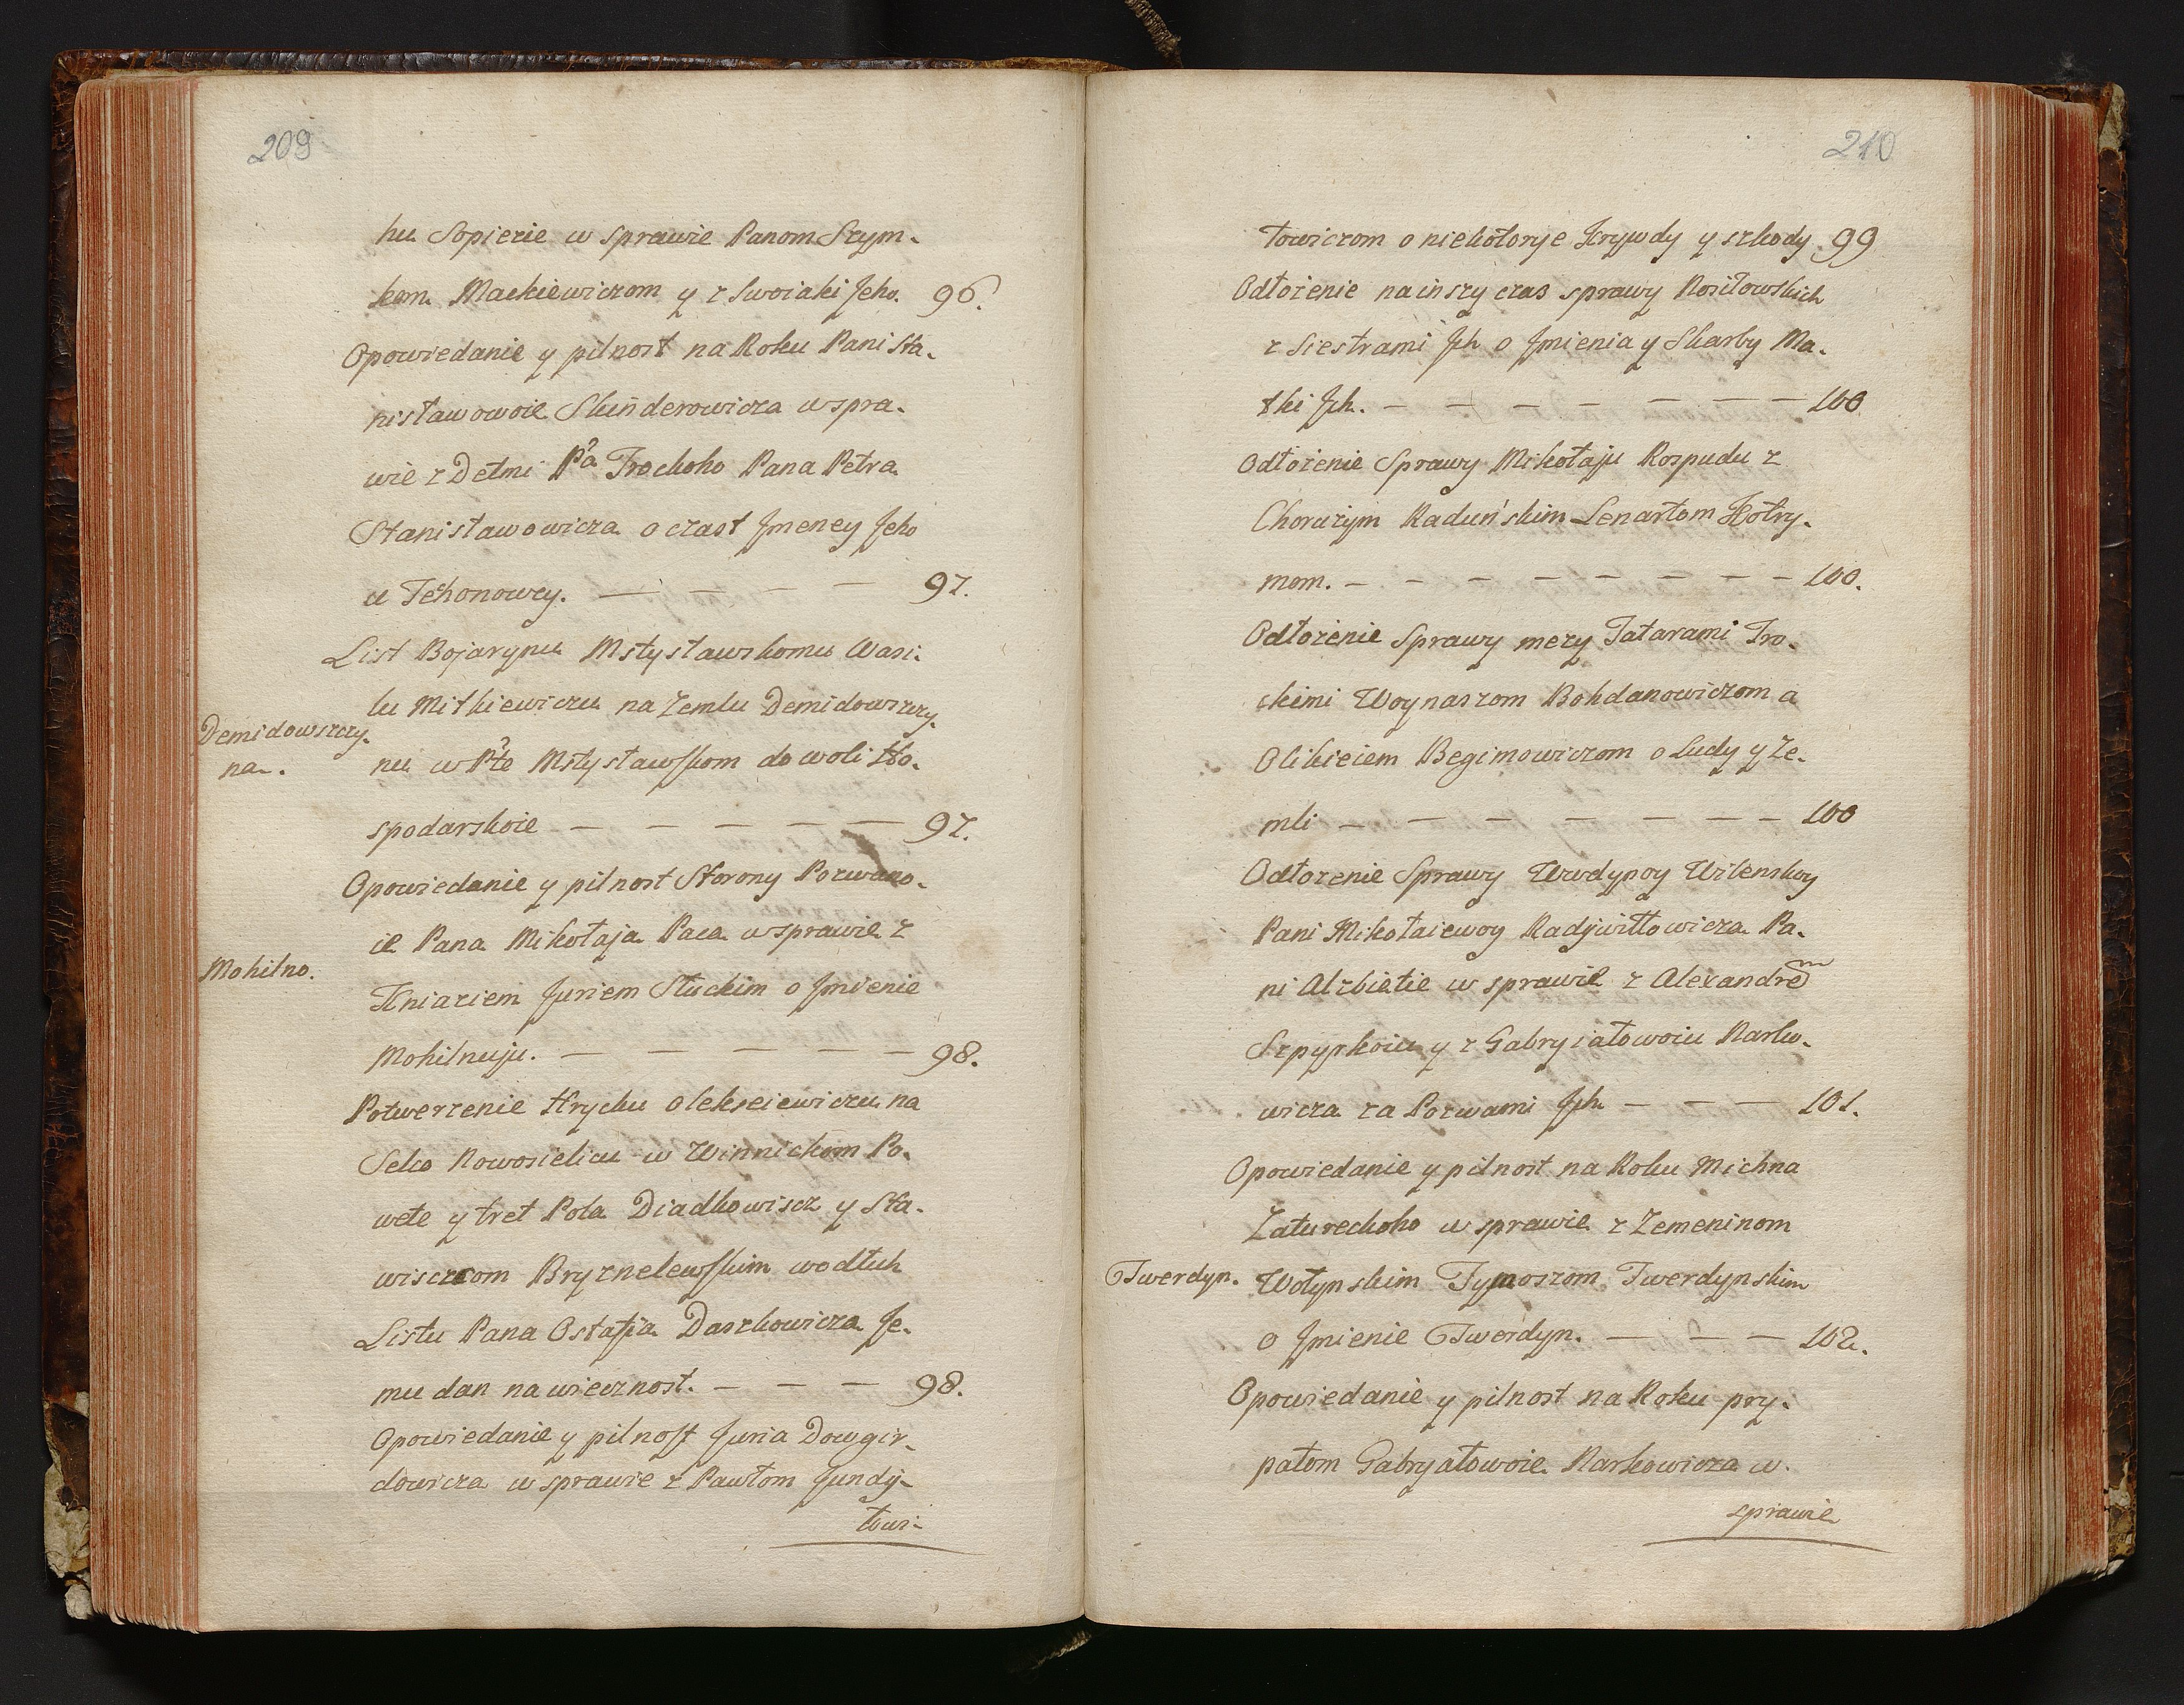 209
hu Sopieżie w sprawie Panom Szym-
kom Mackiewiczom y z Swoiaki Jeho. 96.
Opowiedanie y pilnost na Roku Pani Sta-
nisławowoie Skinderowicza w spra-
wie z Detmi Pa Trockoho Pana Petra
Stanisławowicza o czast Jmeney Jeho
u Techonowcy. — — — — 97.
List Bojarynu Mstysławskomu Wasi-
lu Mitkiewiczu na Zemlu Demidowszczy-
Demidowszczy-
na.
nu w Pte Mstysławskom do woli Ho-
spodarskoie — — — — — 97.
Opowiedanie y pilnost Storony Pozwano-
ie Pana Mikołaja Paca w sprawie z
Mohilno.
Kniaziem Juriem Słuckim o Jmienie
Mohilnuju. — — — — — 98.
Potwerżenie Hrycku Olekseiewiczu na
Selco Nowosielicu w Winnickom Po-
wete y tret Pola Diadkowiscz y Sta-
wisczom Bryznelewskim wodłuh
Listu Pana Ostafia Daszkowicza Je-
mu dan na wiecznost. — — — 98.
Opowiedanie y pilnost Juria Dowgir-
dowicza w sprawie z Pawłom Jundy-
łowi-
210
łowiczom o niekotoryje Krywdy y szkody 99
Odłożenie na inszy czas sprawy Rosiłowskich
z Siestrami Jch o Jmienia y Skarby Ma-
tki Jch. — — — — — — — 100
Odłożenie Sprawy Mikołaju Rospudu z
Chorużym Raduńskim Lenartom Hotry-
mom. — — — — — — — — 100.
Odłożenie Sprawy mezy Tatarami Tro-
ckimi Woynaszom Bohdanowiczom a
Olikieiem Begimowiczom o Ludy y Ze-
mli — — — — — — — 100
Odłożenie Sprawy Wwdynoy Wilenskoy
Pani Mikołaiewoy Radywiłłowicza Pa-
ni Alżbietie w sprawie z Alexandrem
Szpyrkoiu y z Gabryiałowoiu Narko-
wicza za Pozwami Jch — — — 101.
Opowiedanie y pilnost na Roku Michna
Zatureckoho w sprawie z Zemeninom
Twerdyn.
Wołynskim Tymoszom Twerdynskim
o Jmienie Twerdyn. — — — 102.
Opowiedanie y pilnost na Roku pry-
patom Gabryałowoie Narkowicza w
sprawie